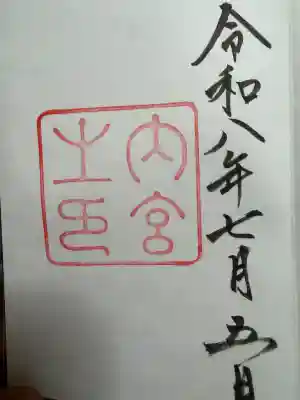 令和八年七月五日
内宮
之印